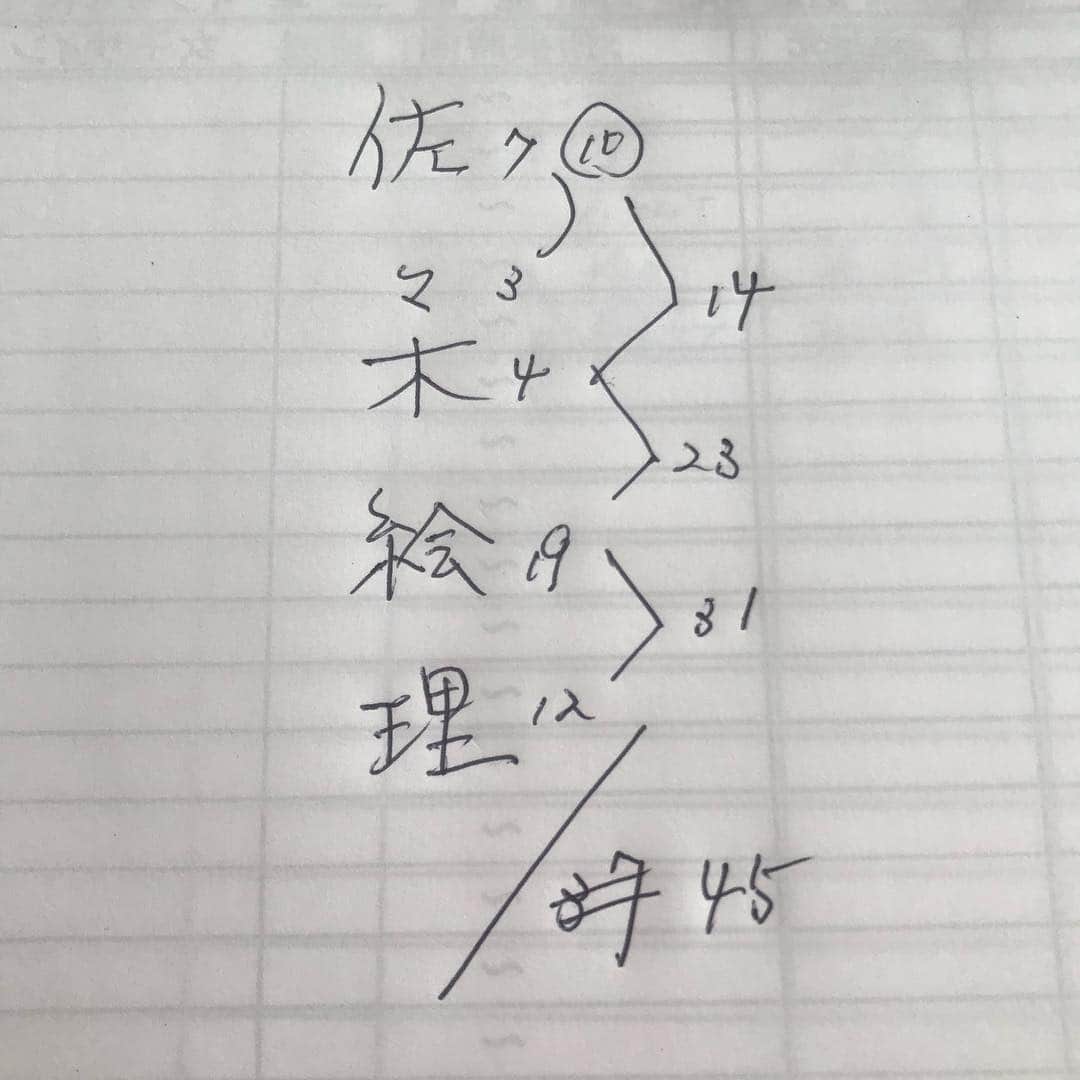 佐 7 10
々 3
14
木 4
23
絵 19
31
理 12
45